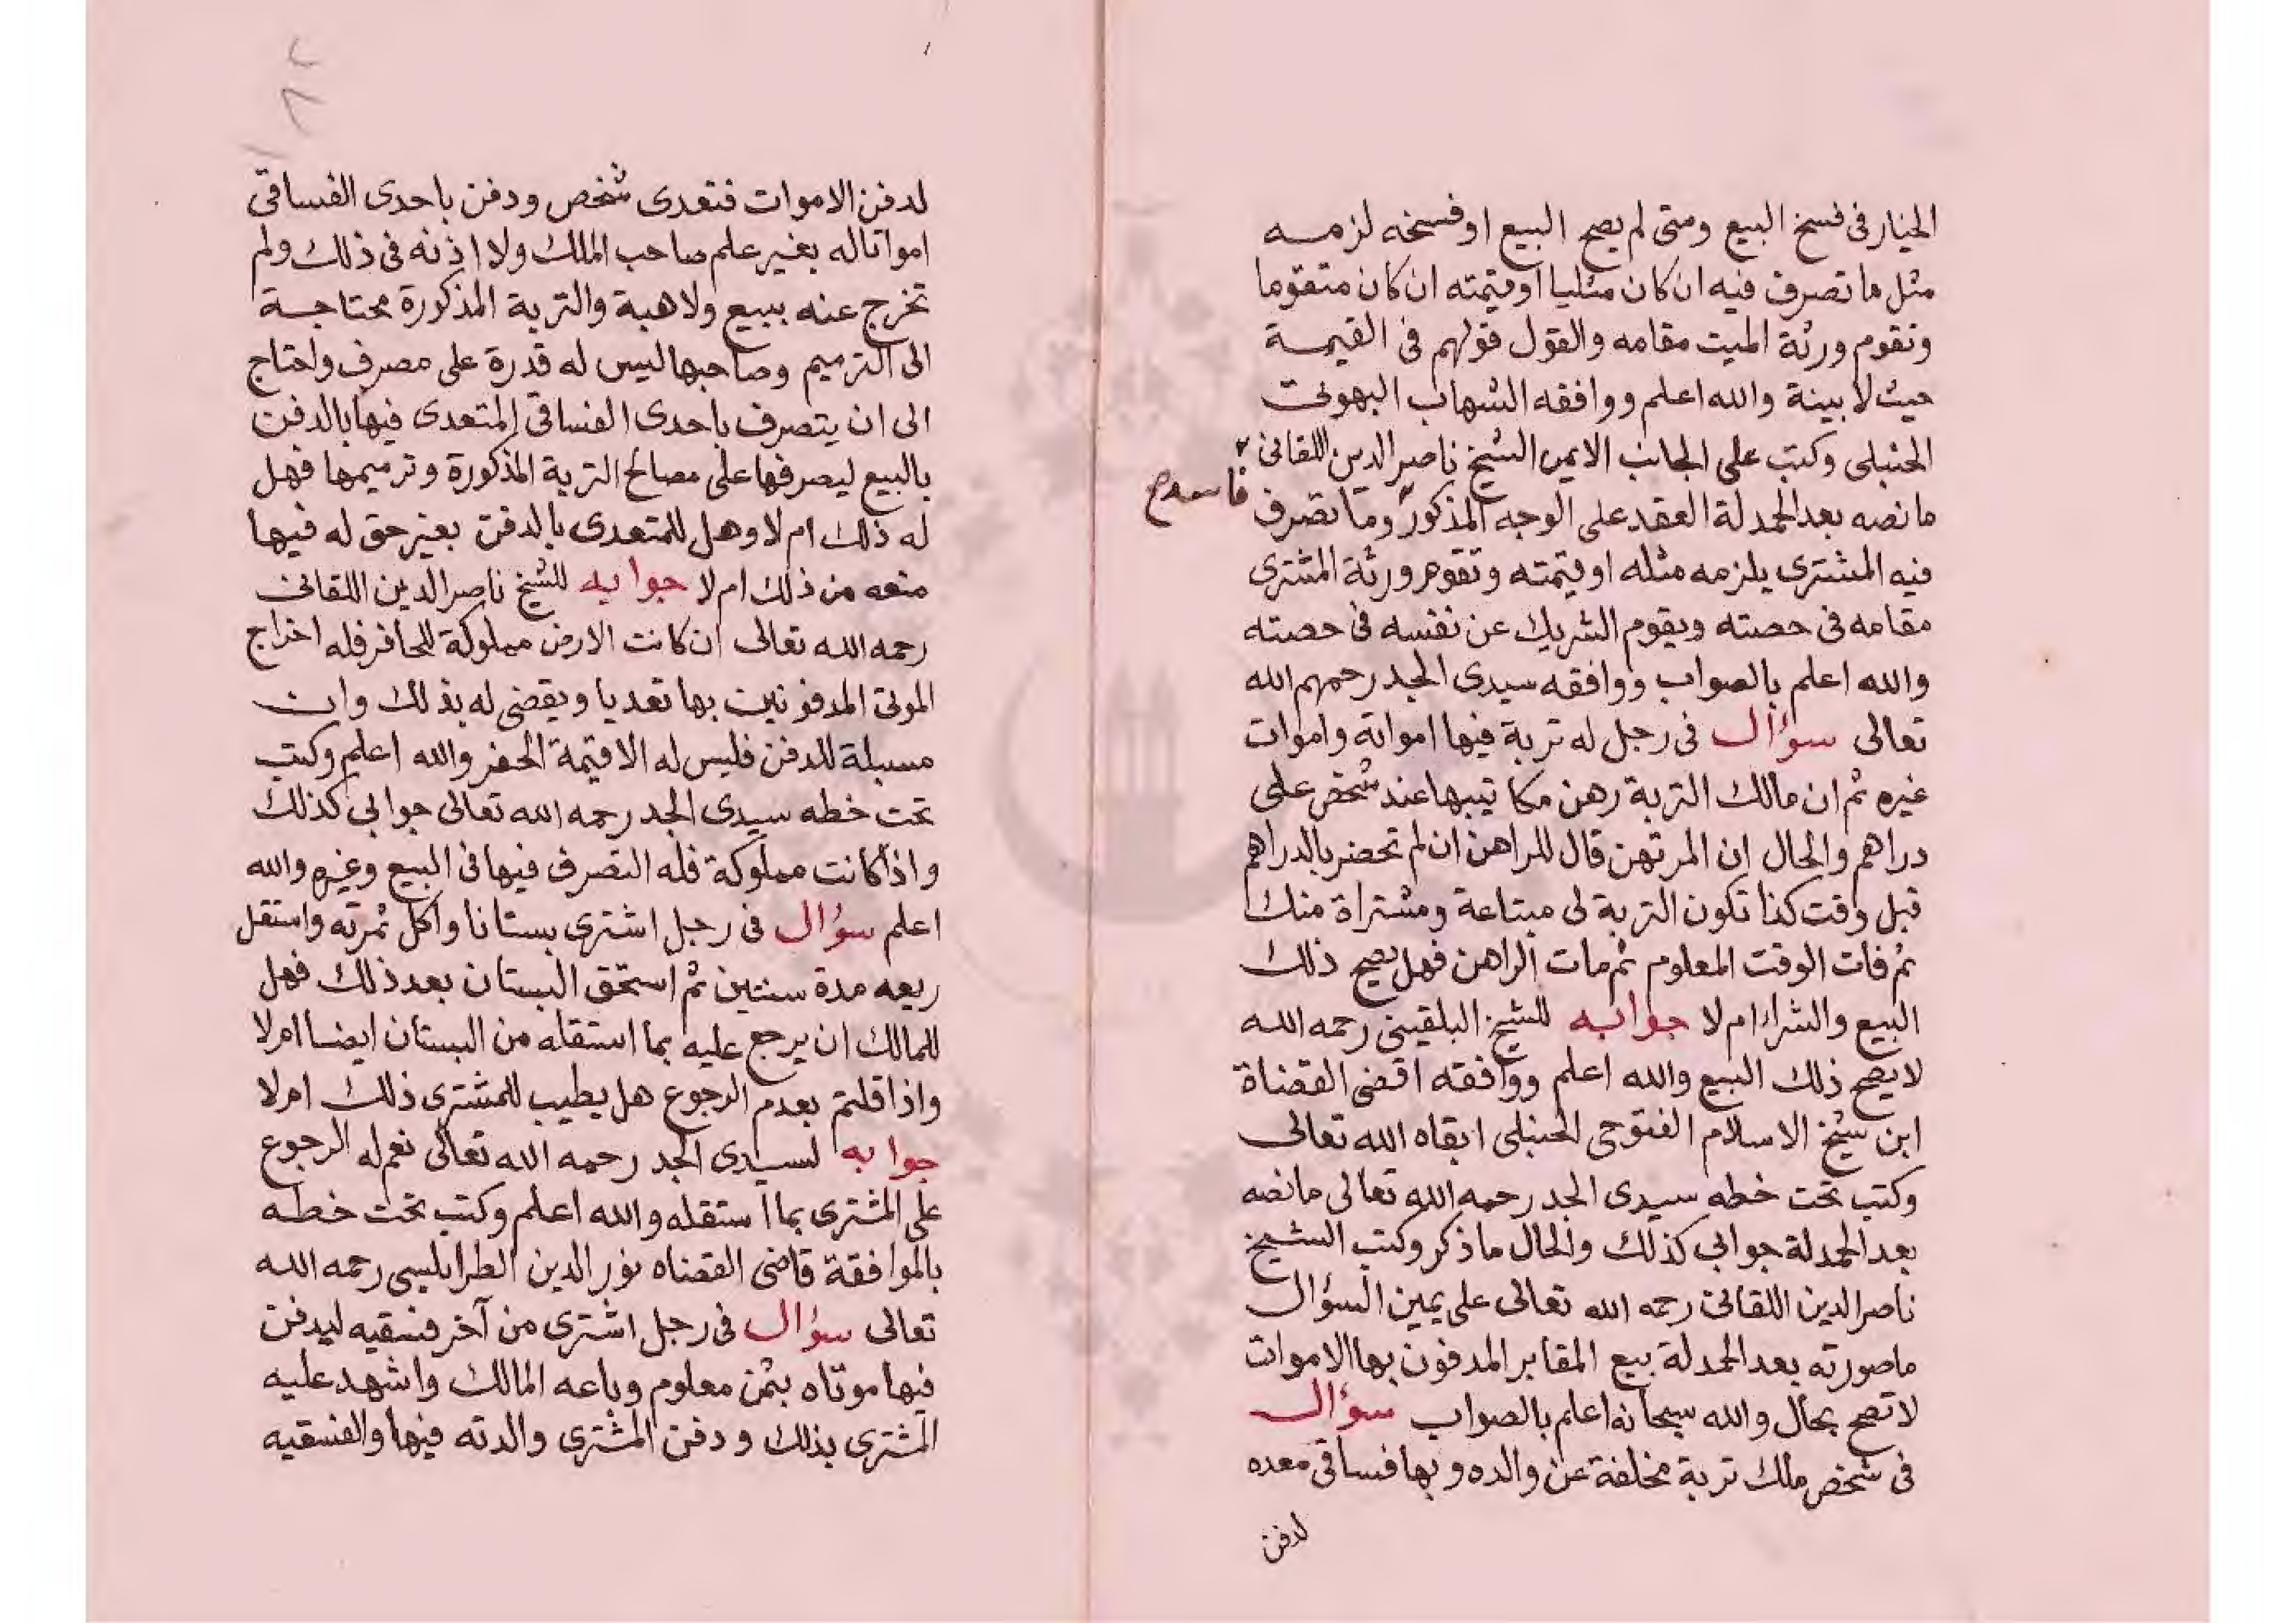 الخيار فى فسخ البيع ومتى لم يصح البيع او فسخه لزمه
مثل ما تصرف فيه ان كان مثليا او قيمته ان كان متقوما
وتقوم ورثة الميت مقامه والقول قولهم فى القيمة
حيث لا بينة والله اعلم ووافقه الشهاب البهوتى
الحنبلى وكتب على الجانب الايمن الشيخ ناصر الدين اللقانى
ما نصه بعد الحمدلة العقد على الوجه المذكور وما تصرف
فاسد صح
فيه المشترى يلزمه مثله او قيمته وتقوم ورثة المشترى
مقامه فى حصته ويقوم الشريك عن نفسه فى حصته
والله اعلم بالصواب ووافقه سيدى الجد رحمهم الله
تعالى سؤال فى رجل له تربة فيها امواته واموات
غيره ثم ان مالك التربة رهن مكاتيبها عند شخص على
دراهم والحال ان المرتهن قال للراهن ان لم تحضر بالدراهم
قبل وقت كذا تكون التربة لى مبتاعة ومشتراة منك
ثم فات الوقت المعلوم ثم مات الراهن فهل يصح ذلك
البيع والشراء ام لا جوابه للشيخ البلقينى رحمه الله
لا يصح ذلك البيع والله اعلم ووافقه اقضى القضاة
ابن شيخ الاسلام الفتوحى الحنبلى ابقاه الله تعالى
وكتب تحت خطه سيدى الجد رحمه الله تعالى ما نصه
بعد الحمدلة جوابى كذلك والحال ما ذكر وكتب الشيخ
ناصر الدين اللقانى رحمه الله تعالى على يمين السؤال
ما صورته بعد الحمدلة بيع المقابر المدفون بها الاموات
لا تصح بحال والله سبحانه اعلم بالصواب سؤال
فى شخص ملك تربة مخلفة عن والده وبها فساقى معده
لدفن
لدفن الاموات فتعدى شخص ودفن باحدى الفساقى
امواتا له بغير علم صاحب الملك ولا اذنه فى ذلك ولم
تخرج عنه ببيع ولا هبة والتربة المذكورة محتاجة
الى الترميم وصاحبها ليس له قدرة على مصرف واحتاج
الى ان يتصرف باحدى الفساقى المتعدى فيها بالدفن
بالبيع ليصرفها على مصالح التربة المذكورة وترميمها فهل
له ذلك ام لا وهل للمتعدى بالدفن بغير حق له فيها
منعه من ذلك ام لا جوابه للشيخ ناصر الدين اللقانى
رحمه الله تعالى ان كانت الارض مملوكة للحافر فله اخراج
الموتى المدفونين بها تعديا ويقضى له بذلك وان
مسبلة للدفن فليس له الا قيمة الحفر والله اعلم وكتب
تحت خطه سيدى الجد رحمه الله تعالى جوابى كذلك
واذا كانت مملوكة فله التصرف فيها فى البيع وغيره والله
اعلم سؤال فى رجل اشترى بستانا واكل ثمرته واستقل
ريعه مدة سنتين ثم استحق البستان بعد ذلك فهل
للمالك ان يرجع عليه بما استقله من البستان ايضا ام لا
واذا قلتم بعدم الرجوع هل يطيب للمشترى ذلك ام لا
جوابه لسيدى الجد رحمه الله تعالى نعم له الرجوع
على المشترى بما استقله والله اعلم وكتب تحت خطه
بالموافقة قاضى القضاه نور الدين الطرابلسى رحمه الله
تعالى سؤال فى رجل اشترى من آخر فسقيه ليدفن
فيها موتاه بثمن معلوم وباعه المالك واشهد عليه
المشترى بذلك ودفن المشترى والدته فيها والفسقيه